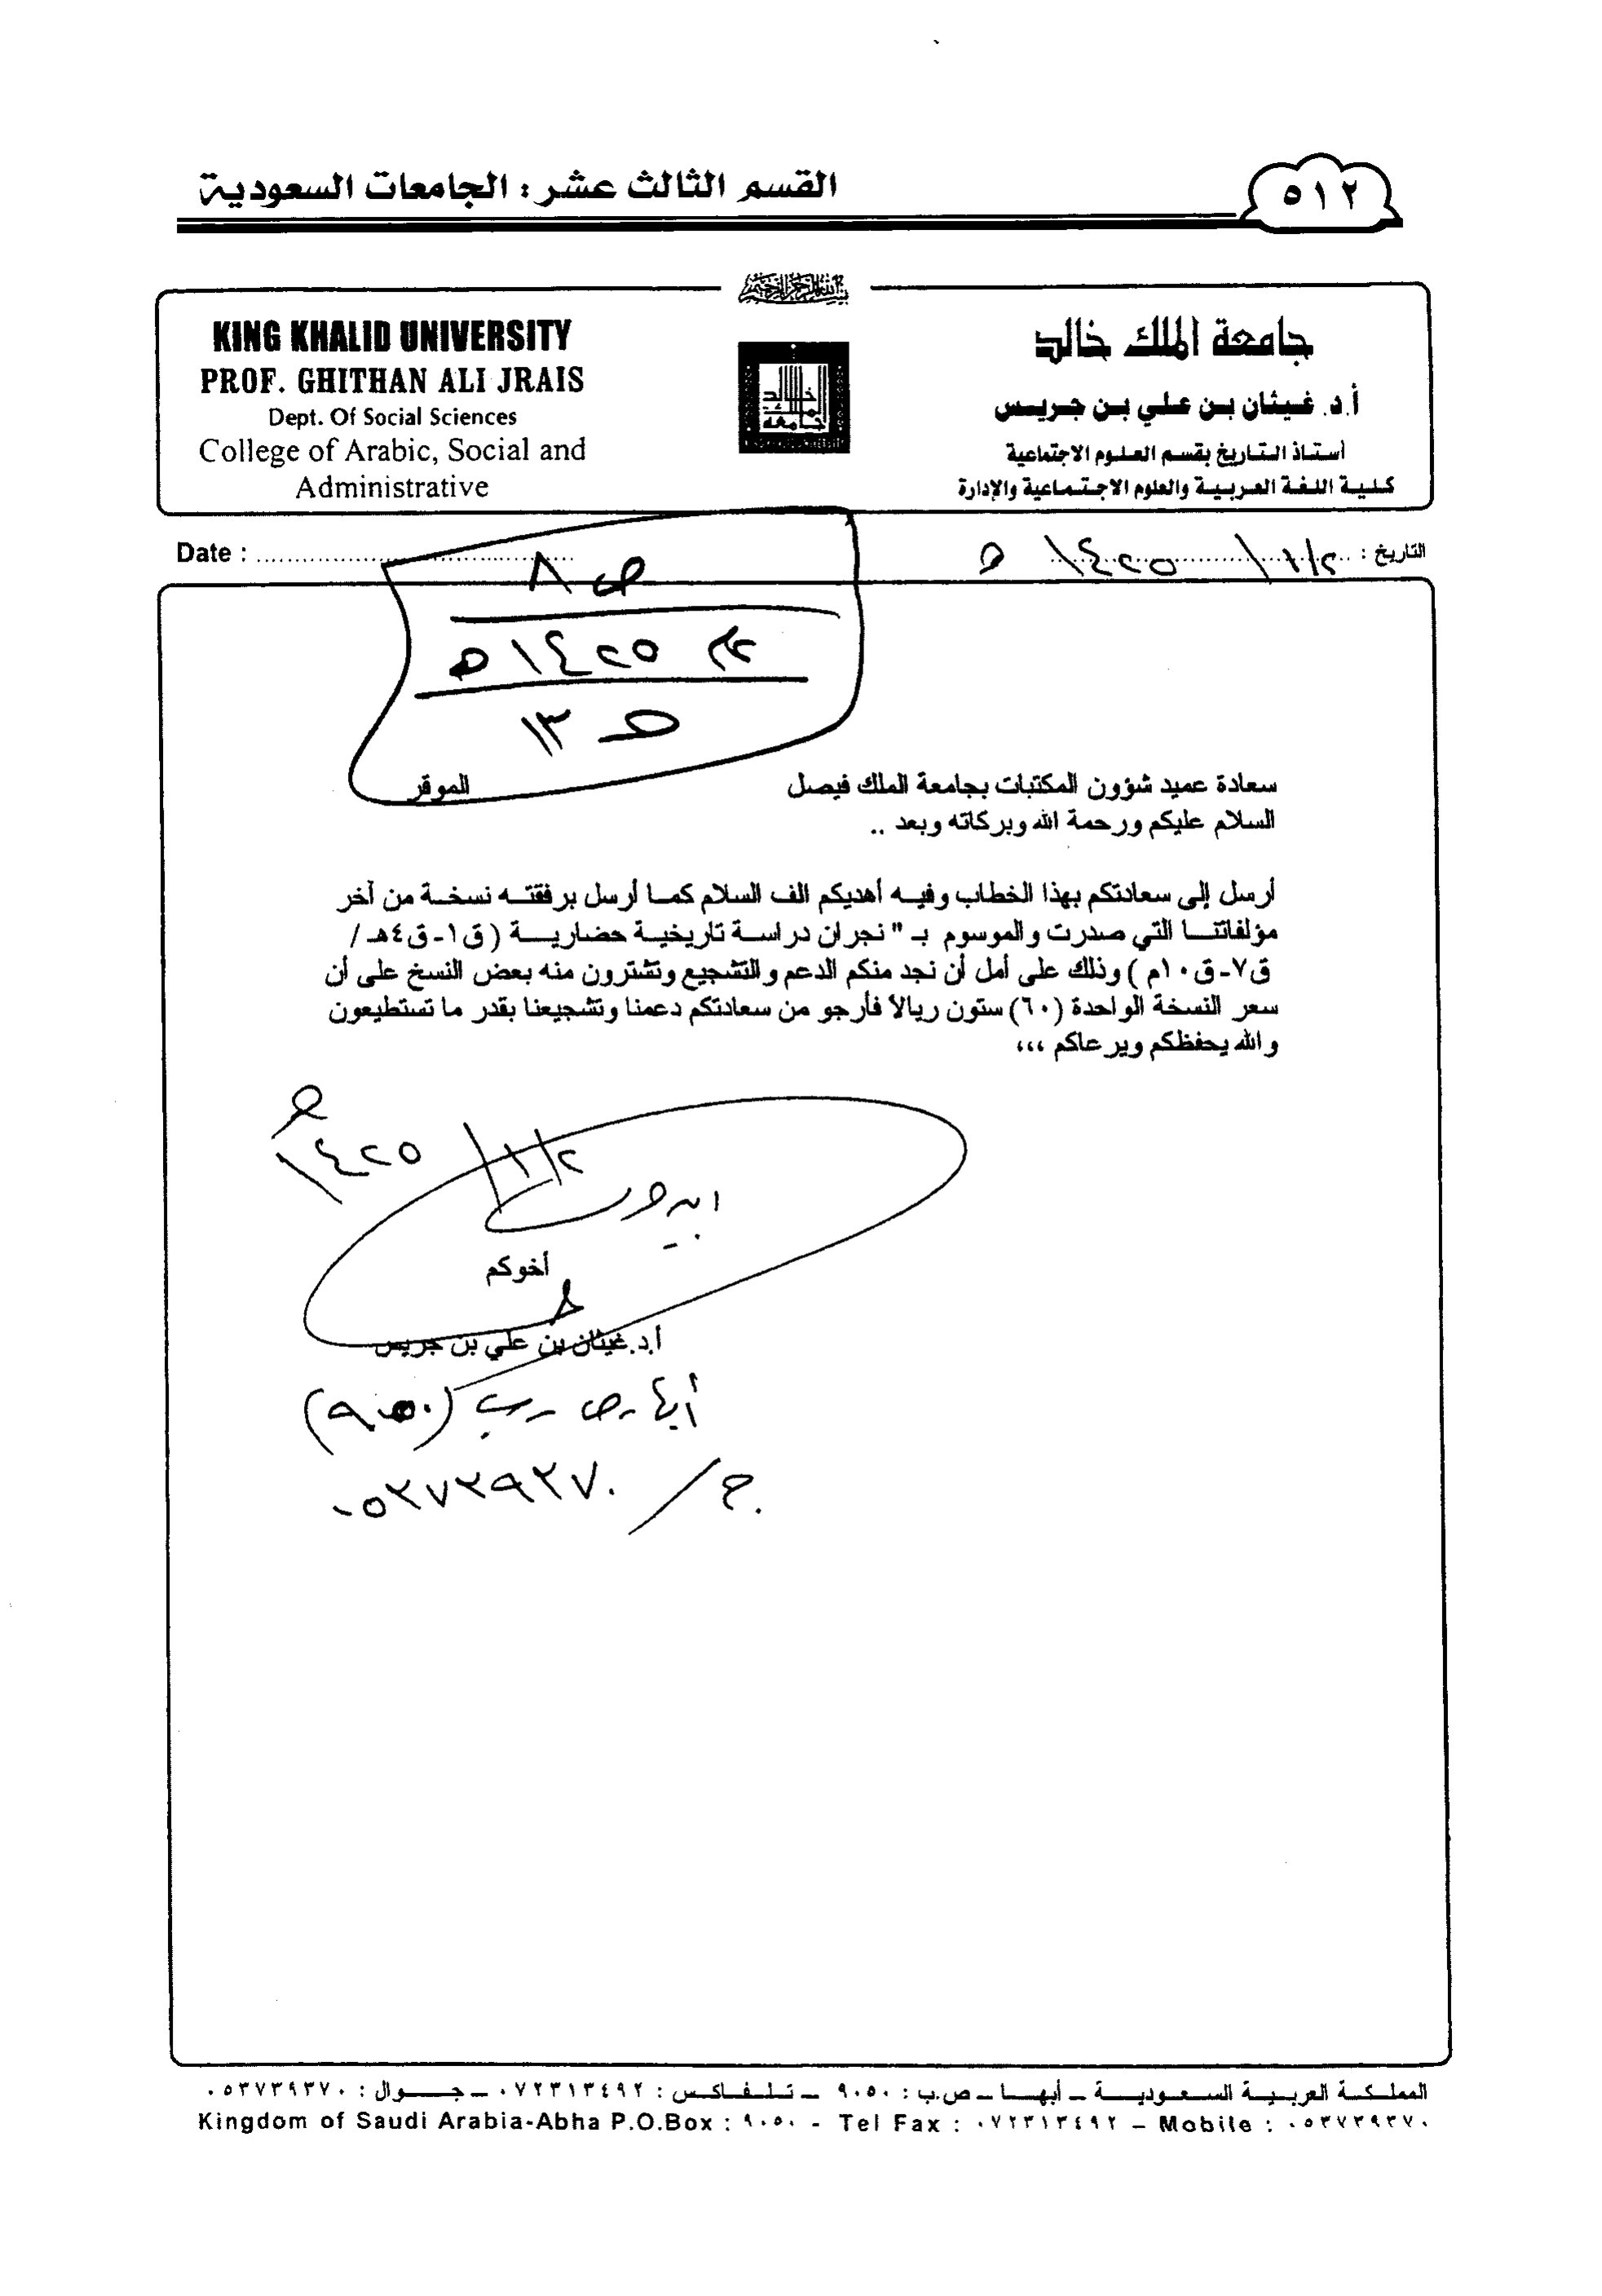 القسم الثالث عشر : الجامعات السعودية
٥١٢
KING KHALID UNIVERSITY
PROF. GHITHAN ALI JRAIS
Dept. Of Social Sciences
College of Arabic, Social and
Administrative
جامعة الملك خالد
أ.د. غيثان بن علي بن جريس
أستاذ التاريخ بقسم العلوم الاجتماعية
كلية اللغة العربية والعلوم الاجتماعية والإدارة
Date :
التاريخ : ١/٢/ ١٤٢٥ هـ
ص ٨
١٤٢٥ هـ
١٣
سعادة عميد شؤون المكتبات بجامعة الملك فيصل الموقر
السلام عليكم ورحمة الله وبركاته وبعد ..
أرسل إلى سعادتكم بهذا الخطاب وفيه أهديكم الف السلام كما أرسل برفقته نسخة من آخر
مؤلفاتنا التي صدرت والموسوم بـ " نجران دراسة تاريخية حضارية ( ق١-ق٤هـ /
ق٧-ق١٠م ) وذلك على أمل أن نجد منكم الدعم والتشجيع وتشترون منه بعض النسخ على أن
سعر النسخة الواحدة (٦٠) ستون ريالا فأرجو من سعادتكم دعمنا وتشجيعنا بقدر ما تستطيعون
والله يحفظكم ويرعاكم ،،،
١/٢/ ١٤٢٥ هـ
أخوكم
أ.د. غيثان بن علي بن جريس
أبها - ص ب (٩٠٥٠)
ج / ٠٥٣٧٣٩٣٧٠
المملكة العربية السعودية – أبها – ص.ب : ٩٠٥٠ – تلفاكس : ٠٧٢٣١٣٤٩٢ – جوال : ٠٥٣٧٣٩٣٧٠
Kingdom of Saudi Arabia-Abha P.O.Box : ٩٠٥٠ - Tel Fax : ٠٧٢٣١٣٤٩٢ – Mobile : ٠٥٣٧٣٩٣٧٠